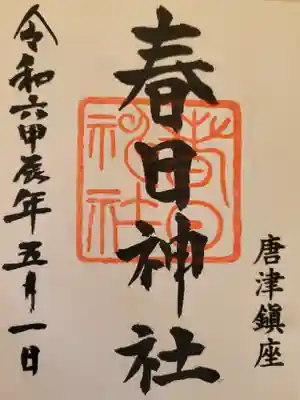 唐津鎮座
春日神社
春日
神社
令和六甲辰年五月一日